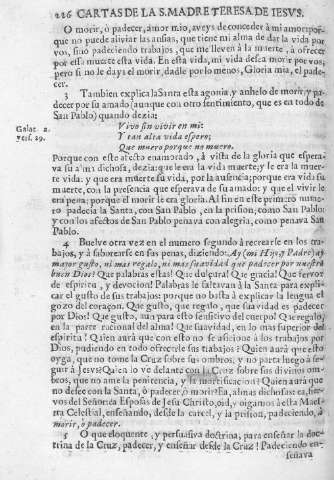 226 CARTAS DE LA S. MADRE TERESA DE IESVS.
O morir, o padecer, amor mio, aveys de conceder à mi amor: porque
no puede aliviar las ansias, que tiene mi alma de dar la vida por
vos, sino padeciendo trabajos, que me lleven à la muerte, à ofrecer
por essa muerte esta vida. En esta vida, mi vida desea morir por vos;
pero si no le days el morir, dadle por lo menos, Gloria mia, el padecer.
3 Tambien explica la Santa esta agonia, y anhelo de morir, y padecer
por su amado (aunque con otro sentimiento, que es en todo de
San Pablo) quando dezia;
Galat. 2.
vers. 29.
Vivo sin vivir en mi:
Y tan alta vida espero;
Que muero porque no muero.
Porque con este afecto enamorado, à vista de la gloria que esperava
su alma dichosa, dezia: que le era la vida muerte, y le era la muerte
vida: y que era muerte su vida, por la ausencia; porque era vida su
muerte, con la presencia que esperava de su amado: y que el vivir le
era pena; porque el morir le era gloria. Al fin en este primero numero
padecia la Santa, con San Pablo, en la prision, como San Pablo:
y con los afectos de San Pablo penava con alegria, como penava San
Pablo.
4 Buelve otra vez en el numero segundo à recrearse en los trabajos,
y à saborearse en sus penas, diziendo: Ay (mi Hijo, y Padre) ay
mayor gusto, ni mas regalo, ni mas suavidad que padecer por nuestro
buen Dios! Que palabras estas! Que dulçura! Que gracia! Que fervor
de espiritu, y devocion! Palabras le faltavan à la Santa para explicar
el gusto de sus trabajos: porque no basta à explicar la lengua el
gozo del coraçon. Que gusto, que regalo, que suavidad es padecer
por Dios! Que gusto, aun para esto sensitivo del cuerpo! Que regalo,
en la parte racional del alma! Que suavidad, en lo mas superior del
espiritu! Quien aurà que con esto no se aficione à los trabajos por
Dios, pudiendo en todo ofrecerle sus trabajos? Quien aurà que esto
oyga, que no tome la Cruz sobre sus ombros, y no parta luego à seguir
à Jesus? Quien lo ve delante con la Cruz sobre sus divinos ombros,
que no ame la penitencia, y la mortificacion? Quien aurà que
no desee con la Santa, ò padecer, ò morir? Ea, almas dichosas: ea, siervos
del Señor: ea Esposas de Jesu Christo, oid, y oigamos à esta Maestra
Celestial, enseñando, desde la carcel, y la prision, padeciendo, à
morir, ò padecer.
5 O que eloquente, y persuasiva doctrina, para enseñar la doctrina
de la Cruz, padecer, y enseñar desde la Cruz! Padeciendo en-
señava